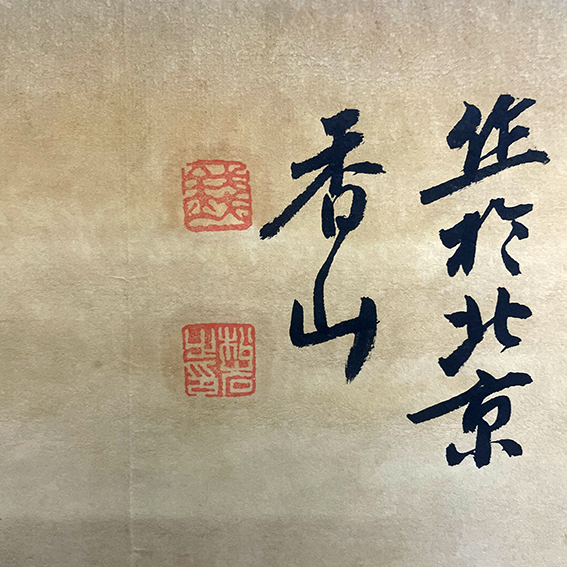 作於北京
香山